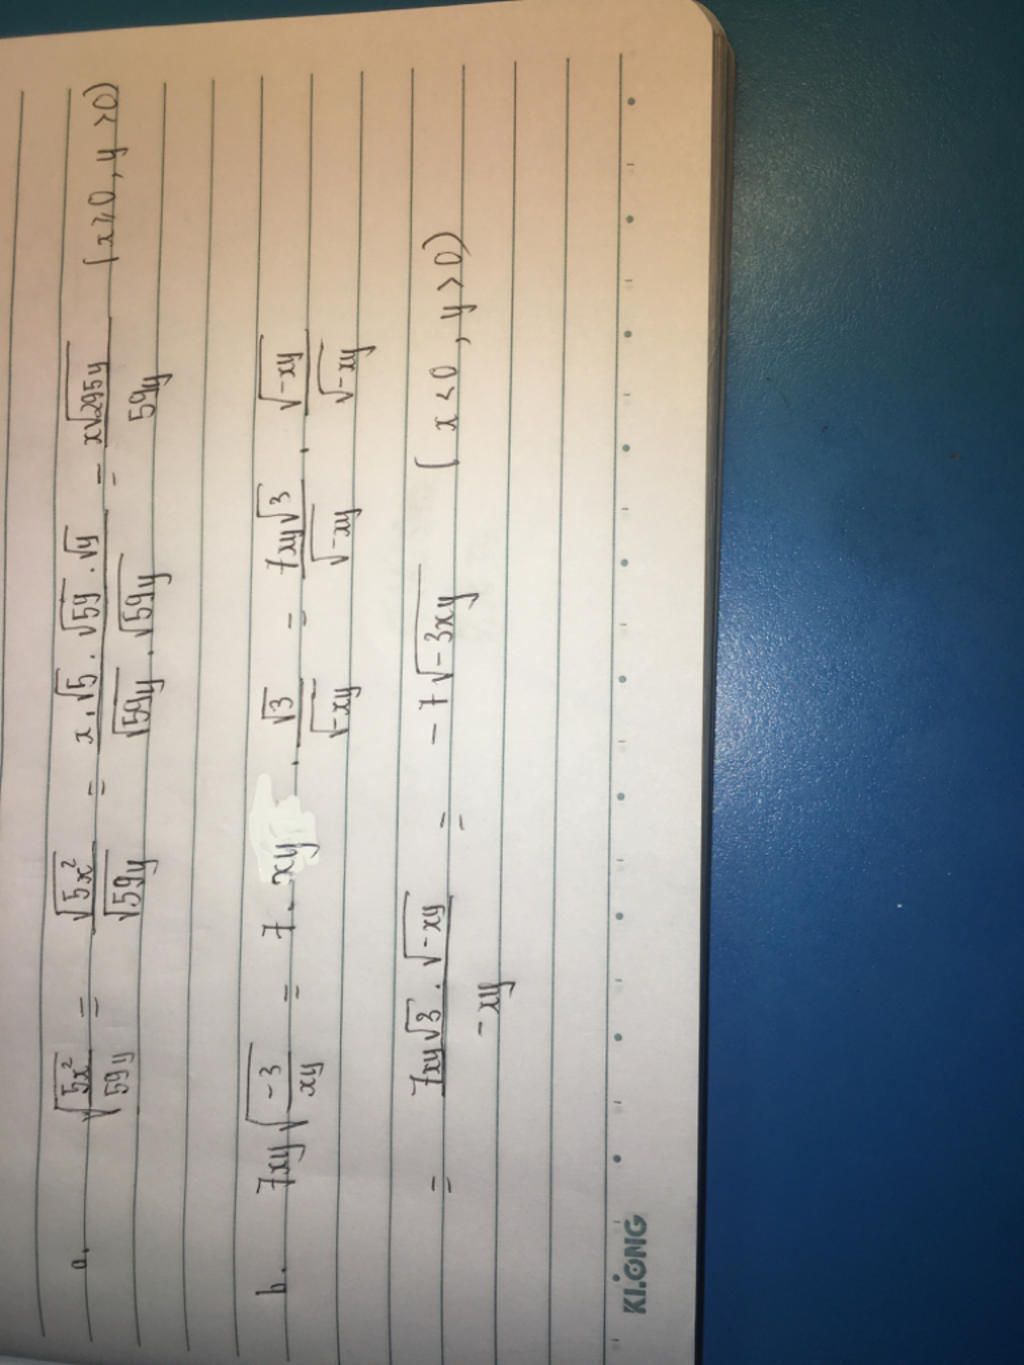 a. √(5x²/59y) = √5x²/√59y = x.√5.√59.√y/√59y.√59y = x√295y/59y (x≥0, y>0)
b. 7xy√(-3/xy) = 7.xy.√3/√-xy = 7xy√3/√-xy . √-xy/√-xy
= 7xy√3.√-xy/-xy = -7√-3xy (x<0, y>0)
KLONG